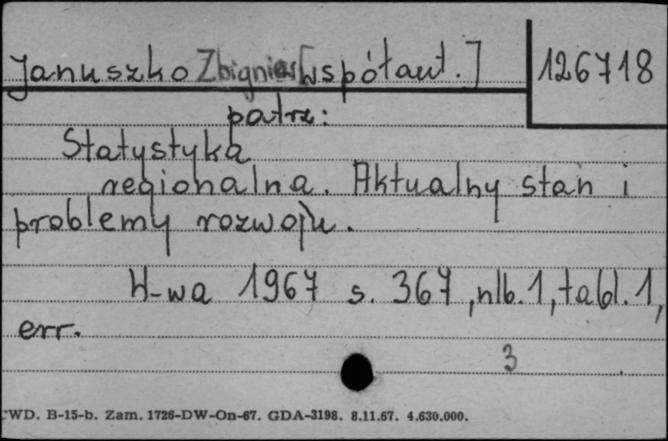 Januszko Zbigniew [współaut.] 126718
patrz:
Statystyka
regionalna. Aktualny stan i
problemy rozwoju.
W-wa 1967 s. 367, nlb. 1, tabl. 1,
err.
3
WD. B-15-b. Zam. 1726-DW-On-67. GDA-3198. 8.11.67. 4.630.000.